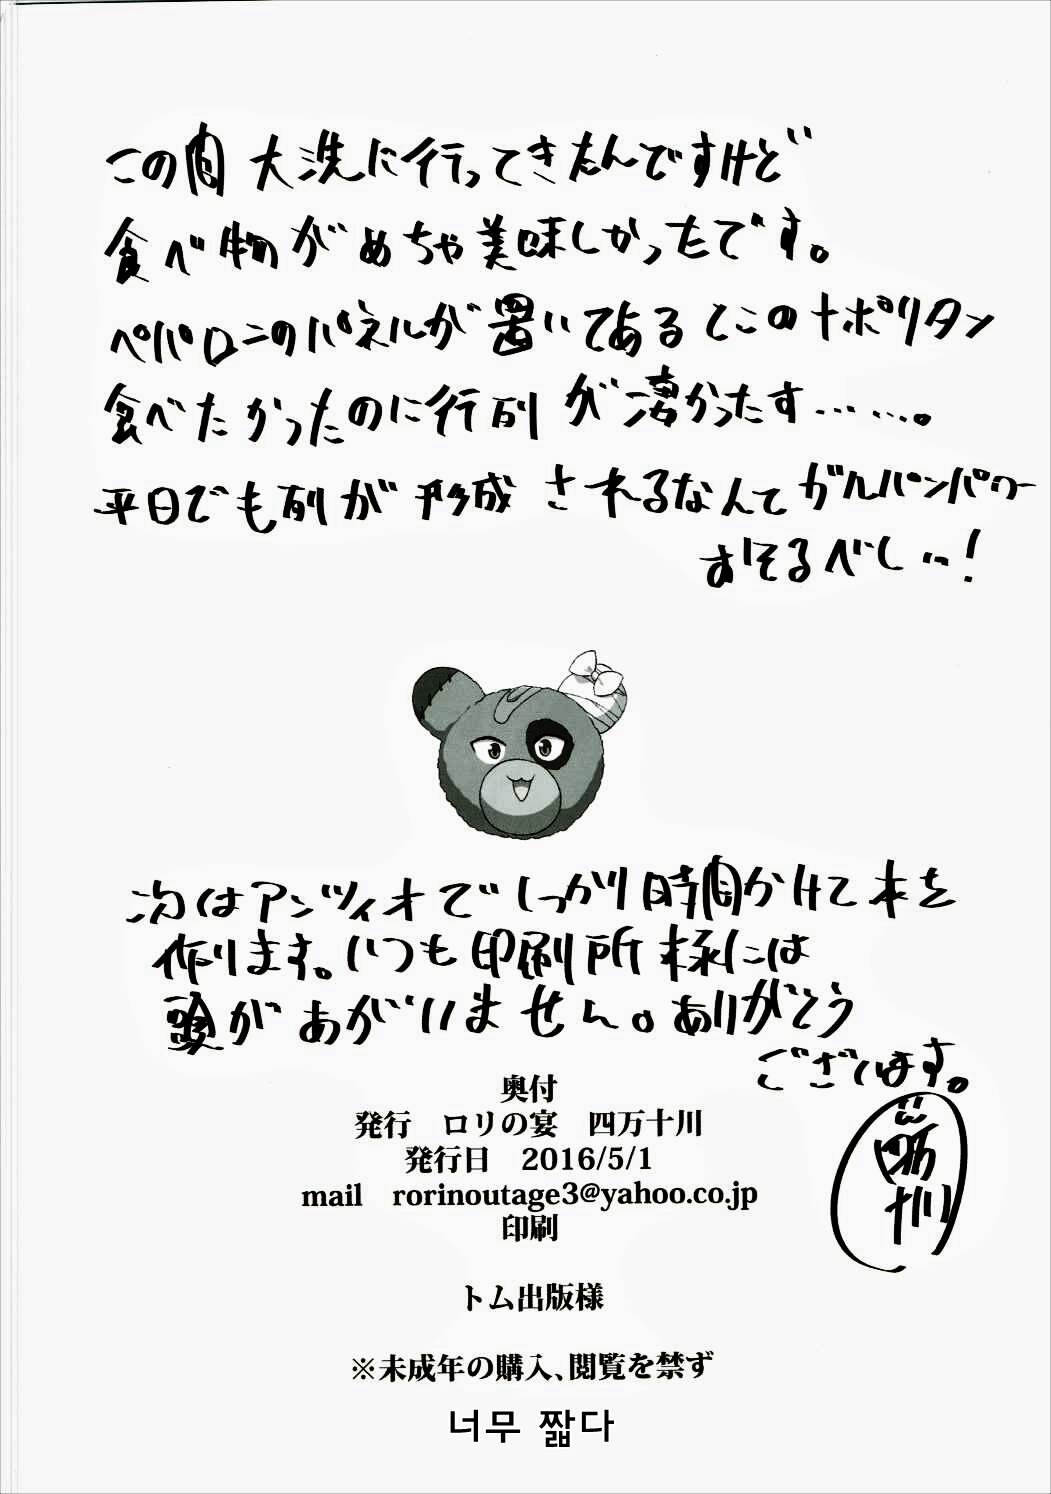 この間大洗に行ってきたんですけど
食べ物がめちゃ美味しかったです。
ペパロニのパネルが置いてあるとこのナポリタン
食べたかったのに行列が凄かったす……。
平日でも列が形成されるなんてガルパンパワー
おそるべし…!
次はアンツィオでしっかり時間かけて本を
作ります。いつも印刷所様には
頭があがいません。ありがとう
ございます。
四万十川
奥付
発行　ロリの宴　四万十川
発行日　2016/5/1
mail　rorinoutage3@yahoo.co.jp
印刷
トム出版様
※未成年の購入、閲覧を禁ず
너무 짧다